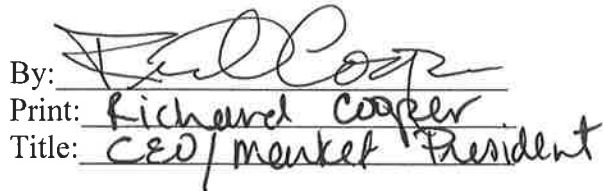 By: Cooper
Print: Richard Cooper
Title: CEO/Market President